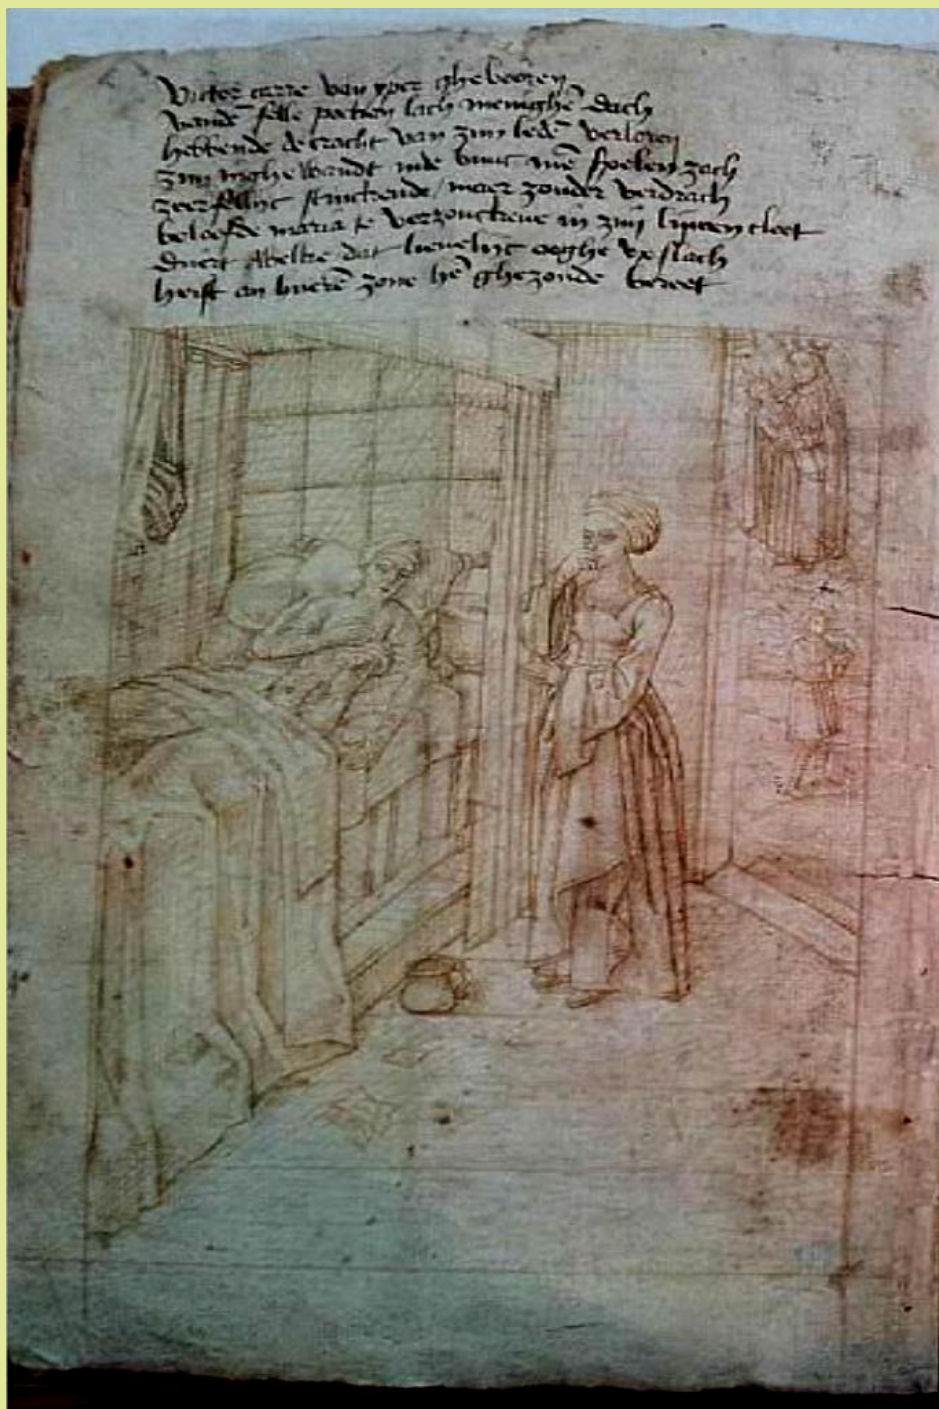 Victor carre van yper ghebooren
vandē felle pocken lach menighē dach
hebbende de cracht van zijn ledē verloren
zijn inghewandt inde buuc mē spelen zach
zeer fellijc stinckende / maer zonder verdrach
beloofde maria te verzouckene in zijn lijnen cleet
dwelke dat lievelijc ooghe
heift an huerē zone hē ghezonde bereet